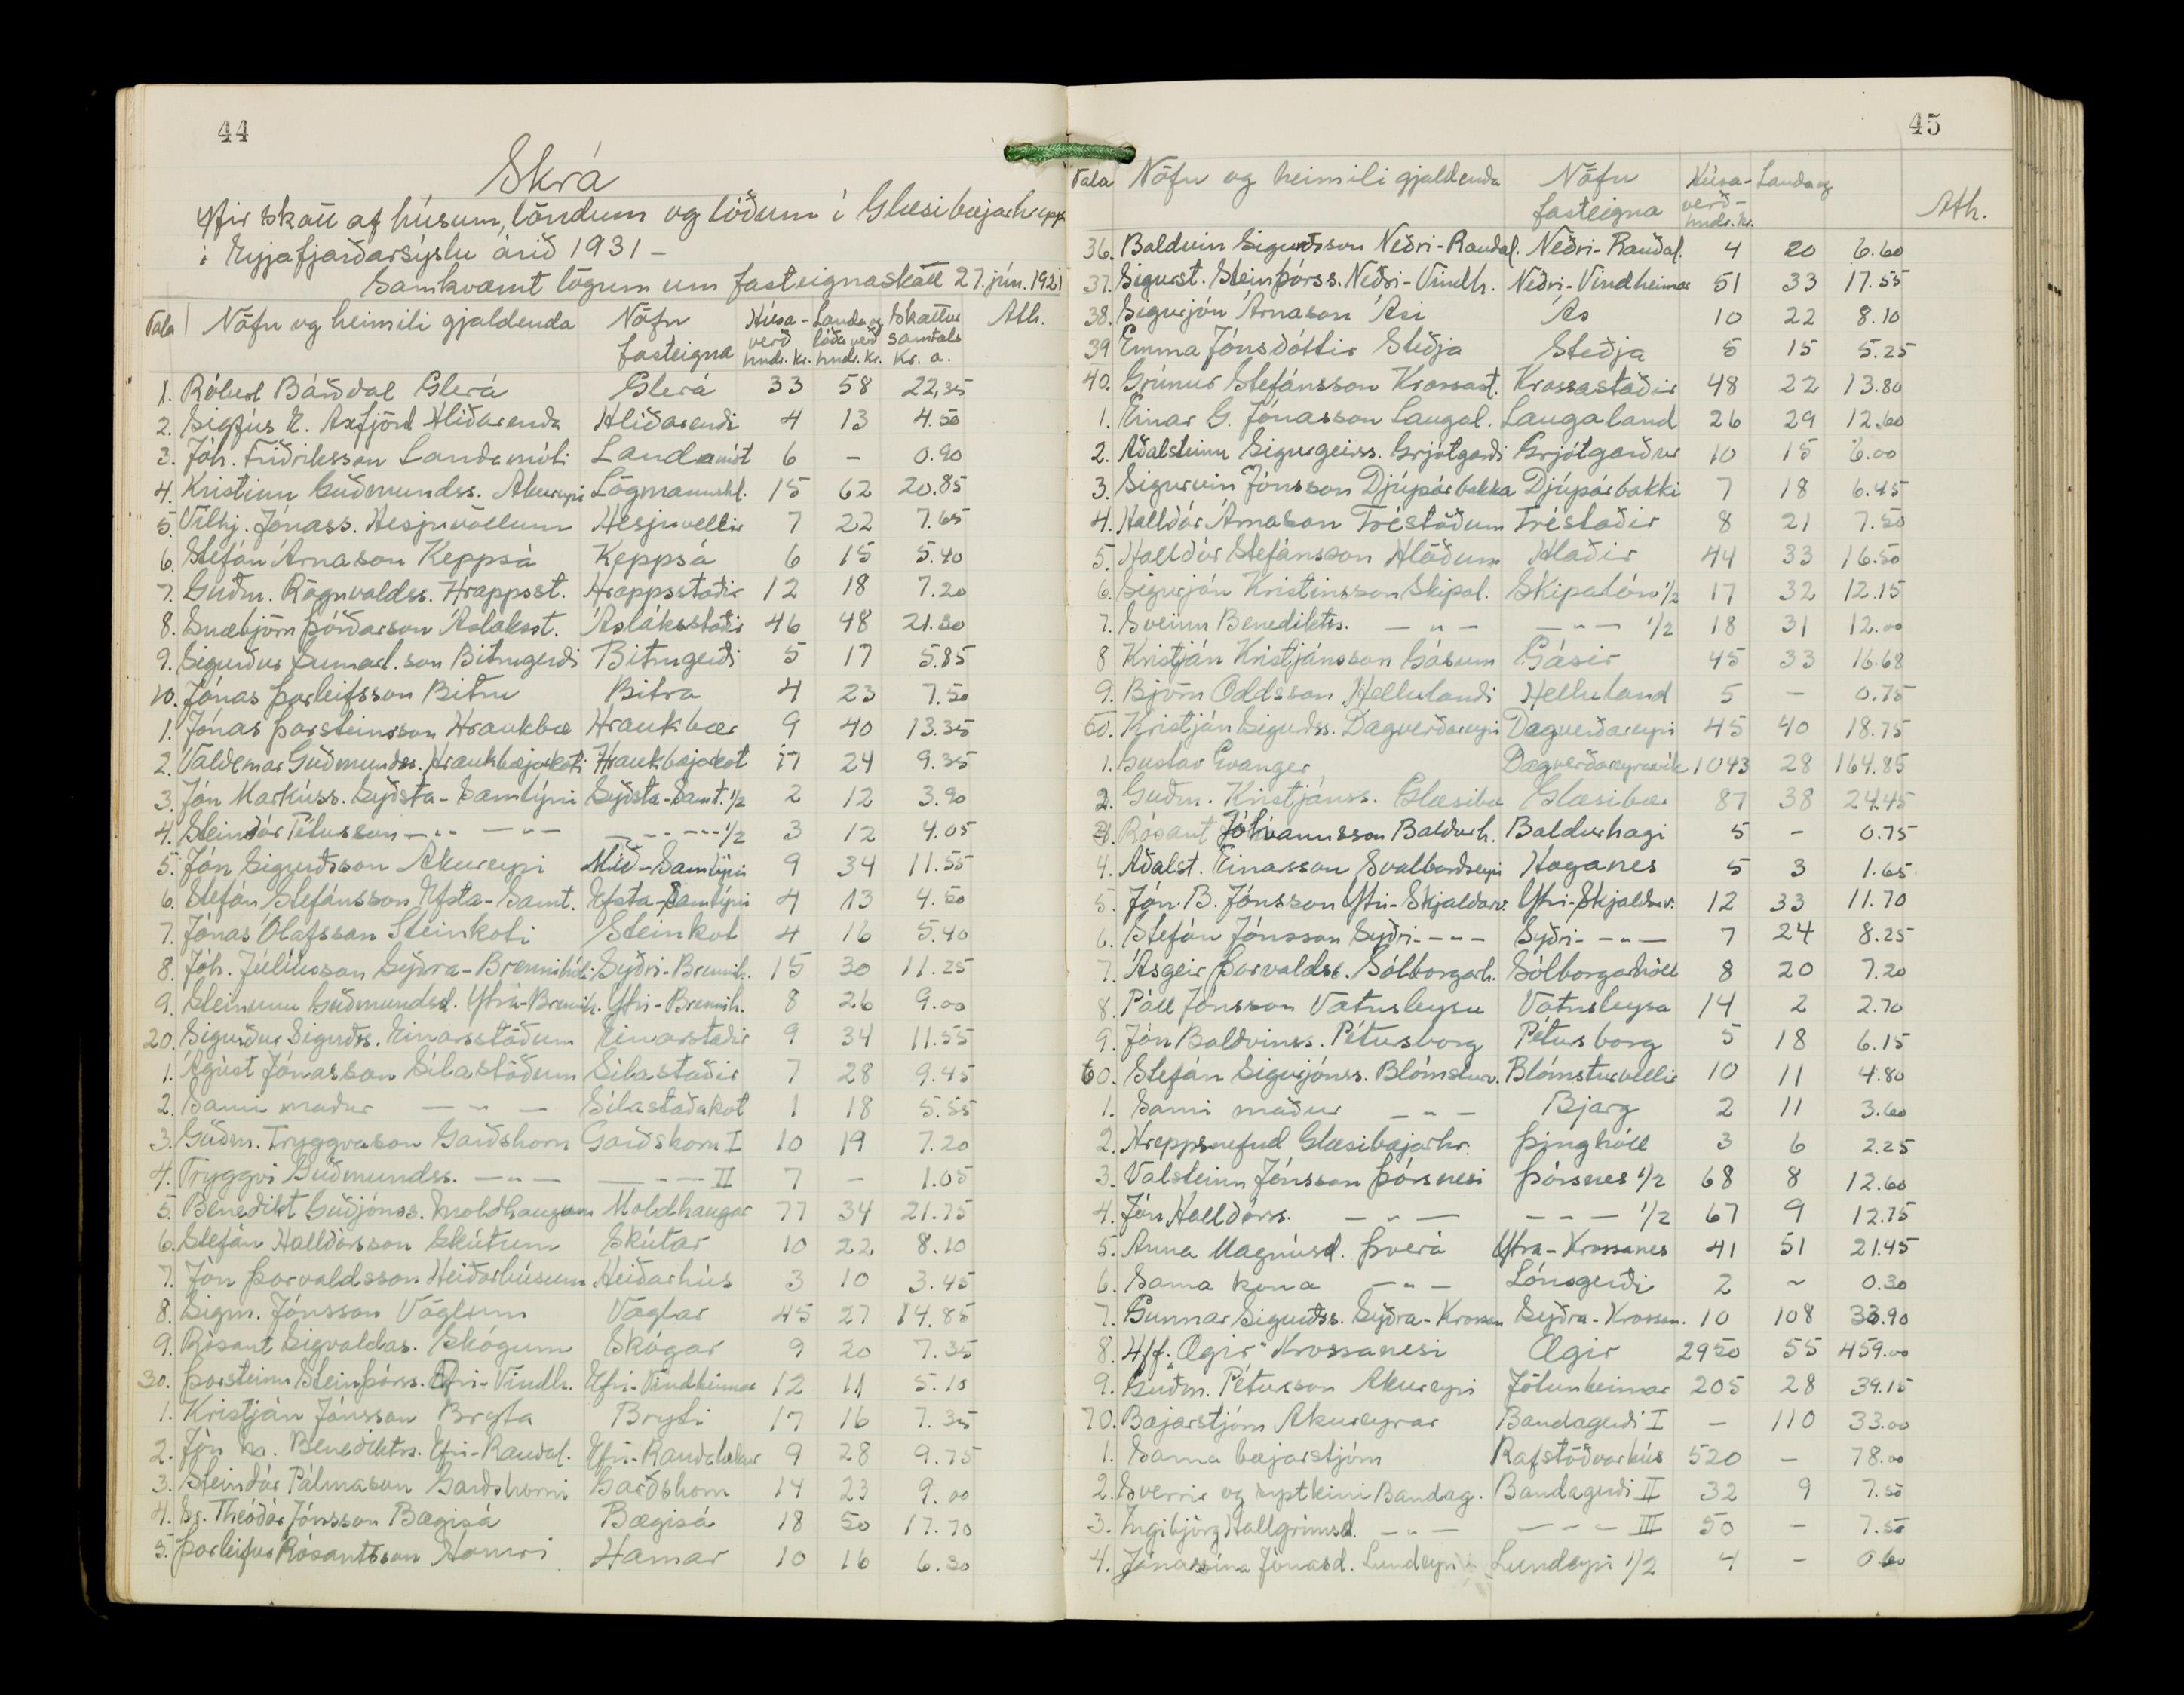 44
Skrá
yfir skatt af húsum, löndum og lóðum í Glæsibæjarhrepp
í Eyjafjarðarsýslu árið 1931 –
Samkvæmt lögum um fasteignaskatt 27. jún. 1921
Tala Nöfn og heimili gjaldenda Nöfn fasteigna Húsaverð hndr. kr. Landa og lóða verð hndr. kr. Skattur samtals kr. a. Ath.
1. Róbert Bárðdal Glerá Glerá 33 58 22,35
2. Sigfús E. Axfjörd Hlíðarenda Hlíðarendi 4 13 4.50
3. Jóh. Friðriksson Landamóti Landamót 6 – 0.90
4. Kristinn Guðmundss. Akureyri Lögmannshl. 15 62 20.85
5. Vilhj. Jónass. Hesjuvöllum Hesjuvellir 7 22 7.65
6. Stefán Árnason Keppsá Keppsá 6 15 5.40
7. Guðm. Rögnvaldss. Hrappsst. Hrappsstaðir 12 18 7.20
8. Snæbjörn Þórðarson Aslákst. Ásláksstaðir 46 48 21.30
9. Sigurður Sumarl.son Bitrugerði Bitrugerði 5 17 5.85
10. Jónas Þorleifsson Bitru Bitra 4 23 7.50
1. Jónas Þorsteinsson Hraukbæ Hraukbær 9 40 13.35
2. Valdemar Guðmundss. Hraukbæjarkoti Hraukbæjarkot 17 24 9.35
3. Jón Markúss. Syðsta-Samtýni Syðsta-Samt. 1/2 2 12 3.90
4. Steindór Pétursson –„– –„– –„– –„– 1/2 3 12 4.05
5. Jón Sigurðsson Akureyri Mið-Samtýni 9 34 11.55
6. Stefán Stefánsson Efsta-Samt. Efsta-Samtýni 4 13 4.50
7. Jónas Ólafsson Steinkoti Steinkot 4 16 5.40
8. Jóh. Júlíusson Syðra-Brennihóli Syðri-Brennih. 15 30 11.25
9. Steinunn Guðmundsd. Ytri-Brennih. Ytri-Brennih. 8 26 9.00
20. Sigurður Sigurðss. Einarsstöðum Einarstaðir 9 34 11.55
1. Ágúst Jónasson Sílastöðum Sílastaðir 7 28 9.45
2. Sami maður –„– Sílastaðakot 1 18 5.55
3. Guðm. Tryggvason Garðshorn Garðshorn I 10 19 7.20
4. Tryggvi Guðmundss. –„– –„– II 7 – 1.05
5. Benedikt Guðjónss. Moldhaugum Moldhaugar 77 34 21.75
6. Stefán Halldórsson Skútum Skútar 10 22 8.10
7. Jón Þorvaldsson Heiðarhúsum Heiðarhús 3 10 3.45
8. Sigm. Jónsson Vöglum Vaglar 45 27 14.85
9. Rósant Sigvaldas. Skógum Skógar 9 20 7.35
30. Þorsteinn Steinþórss. Efri-Vindh. Efri-Vindheimar 12 11 5.10
1. Kristján Jónsson Brýta Bryti 17 16 7.35
2. Jón M. Benediktss. Efri-Rauðal. Efri-Rauðalækur 9 28 9.75
3. Steindór Pálmason Garðshorni Garðshorn 14 23 9.00
4. Sr. Theódór Jónsson Bægisá Bægisá 18 50 17.70
5. Þorleifur Rósantsson Hamri Hamar 10 16 6.30
45
Tala Nöfn og heimili gjaldenda Nöfn fasteigna Húsaverð– hndr. kr. Landa og Ath.
36. Baldvin Sigurðsson Neðri-Rauðal. Neðri-Rauðal. 4 20 6.60
37. Sigurst. Steinþórss. Neðri-Vindh. Neðri-Vindheimar 51 33 17.55
38. Sigurjón Árnason Ási Ás 10 22 8.10
39 Emma Jónsdóttir Steðja Steðja 5 15 5.25
40. Grímur Stefánsson Krossast. Krossastaðir 48 22 13.80
1. Einar G. Jónasson Laugal. Laugaland 26 29 12.60
2. Aðalsteinn Sigurgeirss. Grjótgarði Grjótgarður 10 15 6.00
3. Sigurvin Jónsson Djúpárbakka Djúpárbakki 7 18 6.45
4. Halldór Árnason Tréstöðum Tréstaðir 8 21 7.50
5. Halldór Stefánsson Hlöðum Hlaðir 44 33 16.50
6. Sigurjón Kristinsson Skipal. Skipalón 1/2 17 32 12.15
7. Sveinn Benediktss. –„– –„– 1/2 18 31 12.00
8 Kristján Kristjánsson Gásum Gásir 45 33 16.68
9. Björn Oddsson Hellulandi Helluland 5 – 0.75
50. Kristján Sigurðss. Dagverðareyri Dagverðareyri 45 40 18.75
1. Gustav Evanger Dagverðareyrarvík 1043 28 164.85
2. Guðm. Kristjánss. Glæsibæ Glæsibær 87 38 24.45
3. Rósant Jóhannsson Baldurh. Baldurhagi 5 – 0.75
4. Aðalst. Einarsson Svalbarðseyri Haganes 5 3 1.65
5. Jón B. Jónsson Ytri-Skjaldarv. Ytri-Skjaldarv. 12 33 11.70
6. Stefán Jónsson Syðri- –„– Syðri- –„– 7 24 8.25
7. Ásgeir Þorvaldss. Sólborgarh. Sólborgarhóll 8 20 7.20
8. Páll Jónsson Vatnsleysu Vatnsleysa 14 2 2.70
9. Jón Baldvinss. Pétursborg Pétursborg 5 18 6.15
60. Stefán Sigurjónss. Blómsturv. Blómsturvellir 10 11 4.80
1. Sami maður –„– Bjarg 2 11 3.60
2. Hreppsnefnd Glæsibæjarhr. Þinghóll 3 6 2.25
3. Valsteinn Jónsson Þórsnesi Þórsnes 1/2 68 8 12.60
4. Jón Halldórss. –„– –„– 1/2 67 9 12.75
5. Anna Magnúsd. Þverá Ytra-Krossanes 41 51 21.45
6. Sama kona –„– Lónsgerði 2 ~ 0.30
7. Gunnar Sigurðss. Syðra-Krossan Syðra-Krossan. 10 108 33.90
8. H/f. „Ægir" Krossanesi Ægir 2950 55 459.00
9. Guðm. Pétursson Akureyri Jötunheimar 205 28 39.15
70. Bæjarstjórn Akureyrar Bandagerði I – 110 33.00
1. Sama bæjarstjórn Rafstöðvarhús 520 – 78.00
2. Sverrir og systkini Bandag. Bandagerði II 32 9 7.50
3. Ingibjörg Hallgrímsd. –„– –„– III 50 – 7.50
4. Jónasína Jónasd. Lundeyri Lundeyri 1/2 4 – 0.60